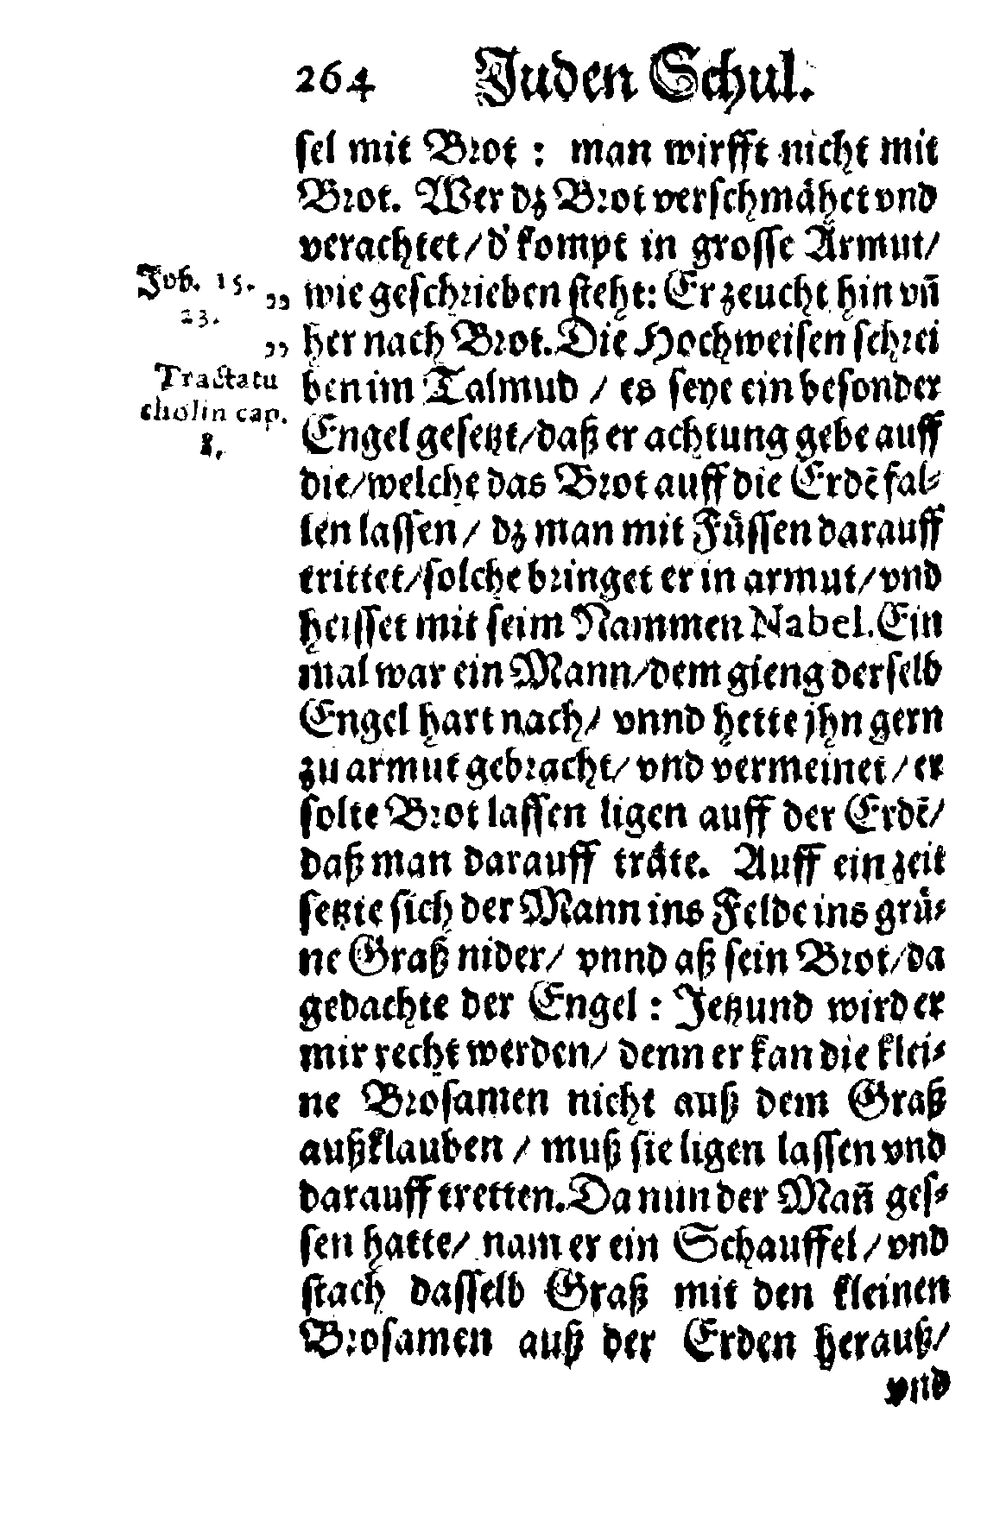 264 Juden Schul.
sel mit Brot : man wirfft nicht mit
Brot. Wer dz Brot verschmähet vnd
verachtet/d' kompt in grosse Armut/
Job. 15. 23.
„ wie geschrieben steht: Er zeucht hin vñ
„ her nach Brot. Die Hochweisen schrei
Tractatu cholin cap. 8.
ben im Talmud / es seye ein besonder
Engel gesetzt/daß er achtung gebe auff
die/welche das Brot auff die Erdē fal-
len lassen / dz man mit Füssen darauff
trittet/solche bringet er in armut/vnd
heisset mit seim Nammen Nabel. Ein
mal war ein Mann/dem gieng derselb
Engel hart nach/ vnnd hette jhn gern
zu armut gebracht/vnd vermeinet/er
solte Brot lassen ligen auff der Erdē/
daß man darauff träte. Auff ein zeit
setzte sich der Mann ins Felde ins grü-
ne Graß nider/ vnnd aß sein Brot/da
gedachte der Engel : Jetzund wird er
mir recht werden/ denn er kan die klei-
ne Brosamen nicht auß dem Graß
außklauben / muß sie ligen lassen vnd
darauff tretten. Da nun der Mañ ges-
sen hatte/ nam er ein Schauffel/vnd
stach dasselb Graß mit den kleinen
Brosamen auß der Erden herauß/
vnd